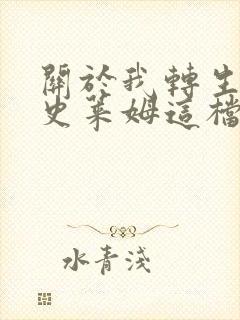 關於我轉生
史萊姆這檔
水青淺